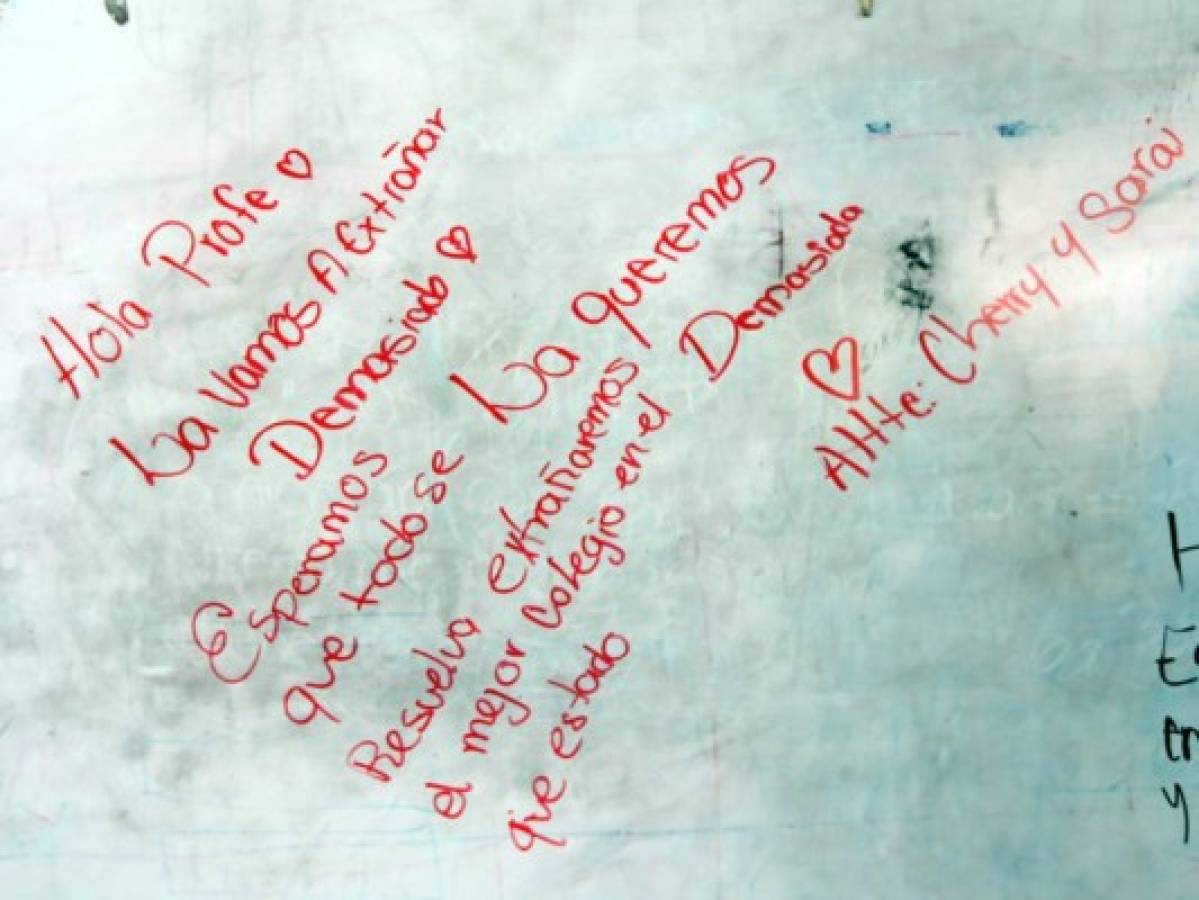 Hola Profe ♡
La Vamos A Extrañar
Demasiado ♡
Esperamos
que todo se
Resuelva extrañaremos
el mejor colegio en el
que estado
La queremos
Demasiada
♡
Attte: Cherry y Sarai
y